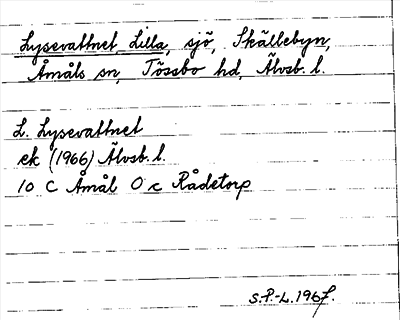 Lysevattnet Lilla, sjö, Skällebyn,
Åmåls sn, Tössbo hd, Älvsb. l.
L. Lysevattnet
ek (1966) Älvsb. l.
10 C Åmål O c Rådetorp
S.P.-L. 1967.